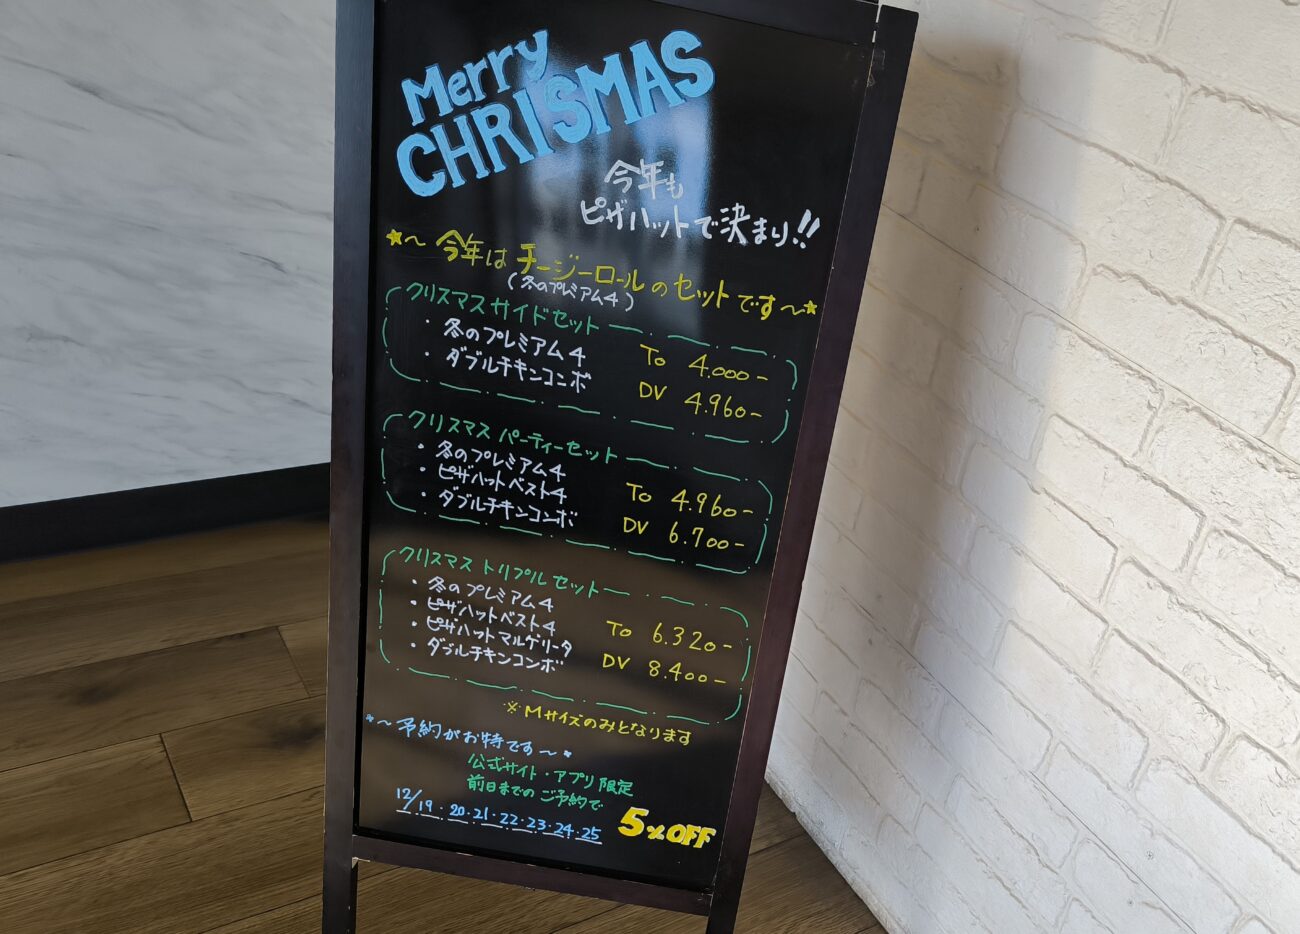 Merry
CHRISMAS
今年も
ピザハットで決まり!!
★～今年はチーズィーロールのセットです～★
(冬のプレミアム4)
クリスマスサイドセット
・冬のプレミアム4
・ダブルチキンコンボ
To 4.000-
DV 4.960-
クリスマスパーティーセット
・冬のプレミアム4
・ピザハットベスト4
・ダブルチキンコンボ
To 4.960-
DV 6.700-
クリスマストリプルセット
・冬のプレミアム4
・ピザハットベスト4
・ピザハットマルゲリータ
・ダブルチキンコンボ
To 6.320-
DV 8.400-
※Mサイズのみとなります
*～予約がお特です～*
公式サイト・アプリ限定
前日までのご予約で
12/19・20・21・22・23・24・25
5%OFF